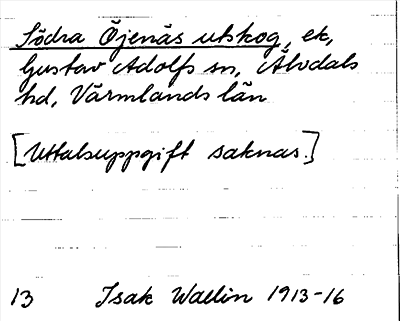 Södra Öjenäs utskog, ek,
Gustav Adolfs sn, Älvdals
hd, Värmlands län
[Uttalsuppgift saknas.]
13 Isak Wallin 1913-16